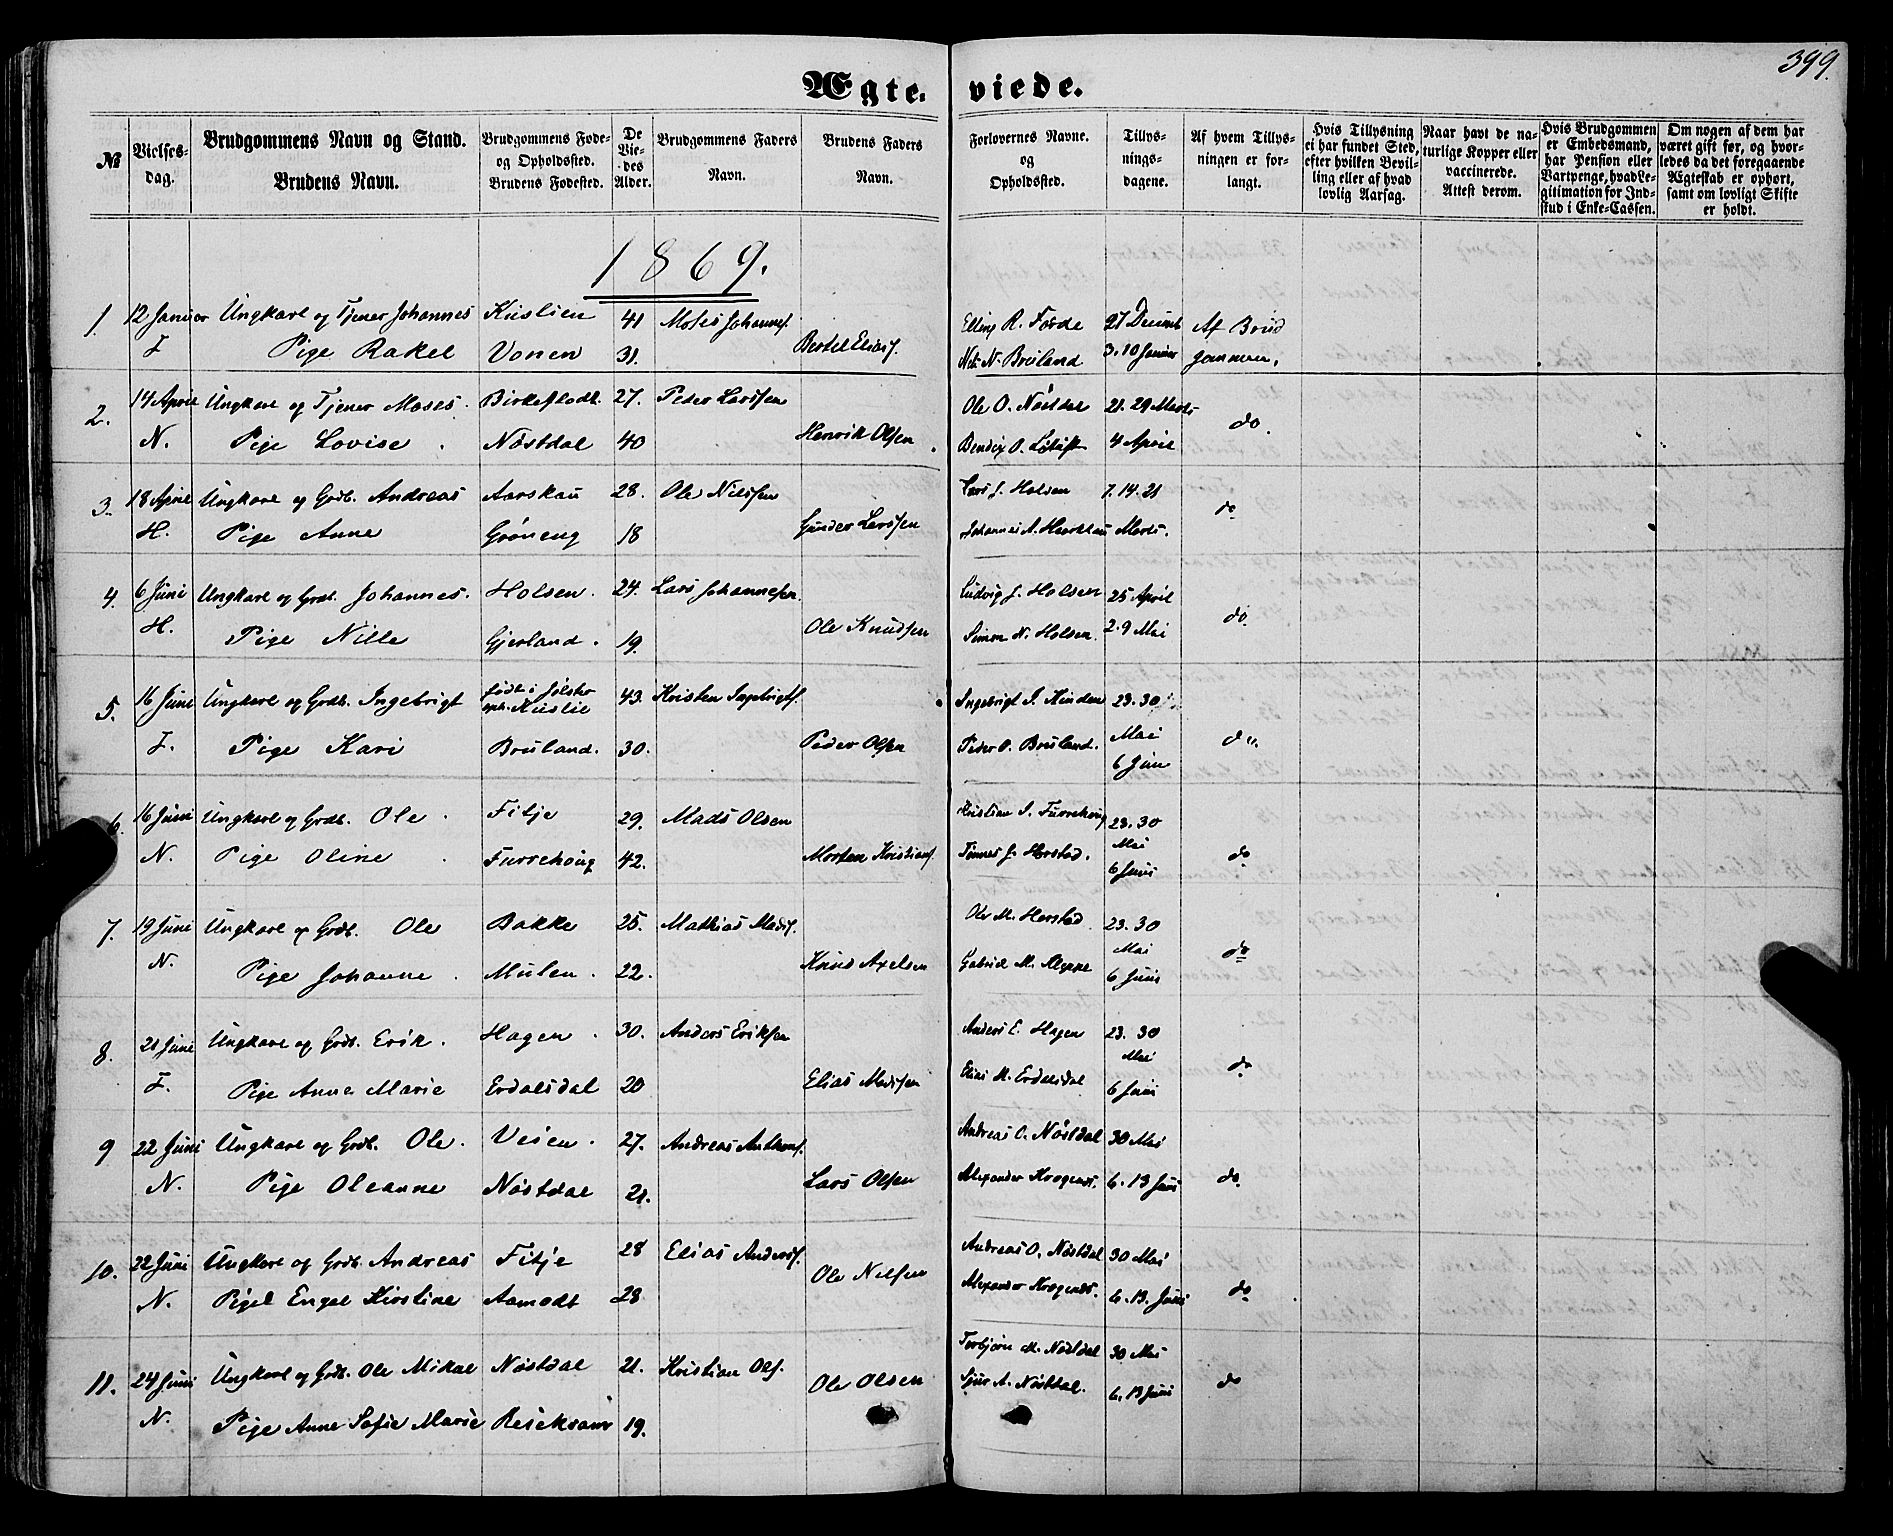 399.
Ægte-
viede.
№
Vielses-
dag.
Brudgommens Navn og Stand.
Brudens Navn.
Brudgommens Føde-
og Opholdssted.
Brudens Fødested.
De
Vie-
des
Alder.
Brudgommens Faders
Navn.
Brudens Faders
Navn.
Forlovernes Navne.
og
Opholdssted.
Tillys-
nings-
dagene.
Af hvem Tillys-
ningen er for-
langt.
Hvis Tillysning
ei har fundet Sted,
efter hvilken Bevil-
ling eller af hvad
lovlig Aarsag.
Naar havt de na-
turlige Kopper eller
vaccinerede.
Attest derom.
Hvis Brudgommen
er Embedsmand,
har Pension eller
Vartpenge, hvad Le-
gitimation for Ind-
skud i Enke-Cassen.
Om nogen af dem har
været gift før, og hvor-
ledes da det foregaaende
Ægteskab er ophørt,
samt om lovligt Skifte
er holdt.
1869.
1. 12 Januar Ungkarl og Tjener Johannes 41 Moses Johannes. R. Førde 27 Decemb Af Brud
Pige Rakel Vonen 31. Bertel Elias. N. Bruland 3. 10 Januar gommen.
2. 14 April Ungkarl og Tjener Moses. 27. Peder Larssen Ole O. Nøstdal 21. 29 Marts do.
N. Pige Lovise. Nøstdal 40 Henrik Olsen Bendix O. 4 April
3. 18 April Ungkarl og Grdb. Andreas Aarskau 28. Ole Nilssen Lars J. Holsen 7. 14. 21 do
H. Pige Anne Grøneng 18 Gunder Larssen Johannes A. Marts.
4. 6 Juni Ungkarl og Grdb. Johannes. Holsen. 24. Lars Johannesen Ludvig J. Holsen 25 April do.
H. Pige Nille Gjerland. 19. Ole Knudsen Simon N. Holsen. 2. 9 Mai
5. 16 Juni Ungkarl og Grdb. Ingebrigt født i Jølster 43. Kristen Ingebrigts. Ingebrigt I. Hinden 23. 30 do.
Pige Kari Bruland. 30. Peder Olsen Peder O. Bruland. Mai
6 Juni
6. 16 Juni Ungkarl og Grdb. Ole. Fitje 29. Mads Olsen Kristian I. Furrehoug 23. 30
N. Pige Oline. Furrehoug 42. Morten Kristians. Tønnes J. Herstad. Mai do
6 Juni
7. 19 Juni Ungkarl og Grdb. Ole Bakke 25. Mathias Mads. Ole M. Herstad 23. 30
N. Pige Johanne. Mulen. 22. Knud Axelsen Gabriel M. Mai do
6 Juni
8. 21 Juni Ungkarl og Grdb. Erik. Hagen. 30. Anders Eriksen Anders E. Hagen 23. 30
Pige Anne Marie Erdalsdal 20 Elias Madssen Elias M. Erdalsdal Mai do
6 Juni
9 22 Juni Ungkarl og Grdb. Ole. Veien. 27. Andreas Anthons. Andreas O. Nøstdal 30 Mai
N. Pige Oleanne Nøstdal 21. Lars Olsen Alexander 6. 13 Juni do.
10. 22 Juni Ungkarl og Grdb. Andreas Fitje 28 Elias Anders. Andreas O. Nøstdal 30 Mai
N. Engel Kirstine Aamodt 28 Ole Nilsen Alexander 6. 13. Juni do
11. 24 Juni Ungkarl og Grdb. Ole Mikal Nøstdal 21. Kristian Ols. Torbjørn M. Nøstdal 30 Mai
N. Pige Anne Sofie Marie 19. Ole Olsen Sjur A. Nøstdal. 6. 13 Juni do